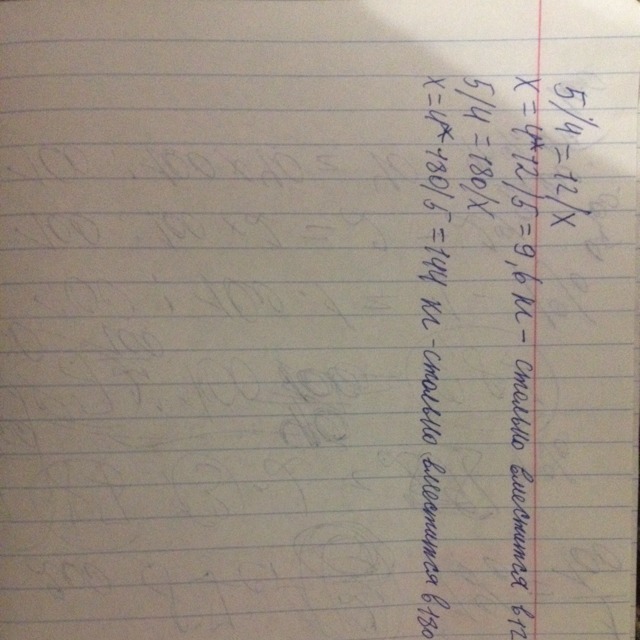 5/4 = 12/x
x = 4*12/5 = 9,6 кг - столько вместится в 12
5/4 = 180/x
x = 4*180/5 = 144 кг - столько вместится в 180